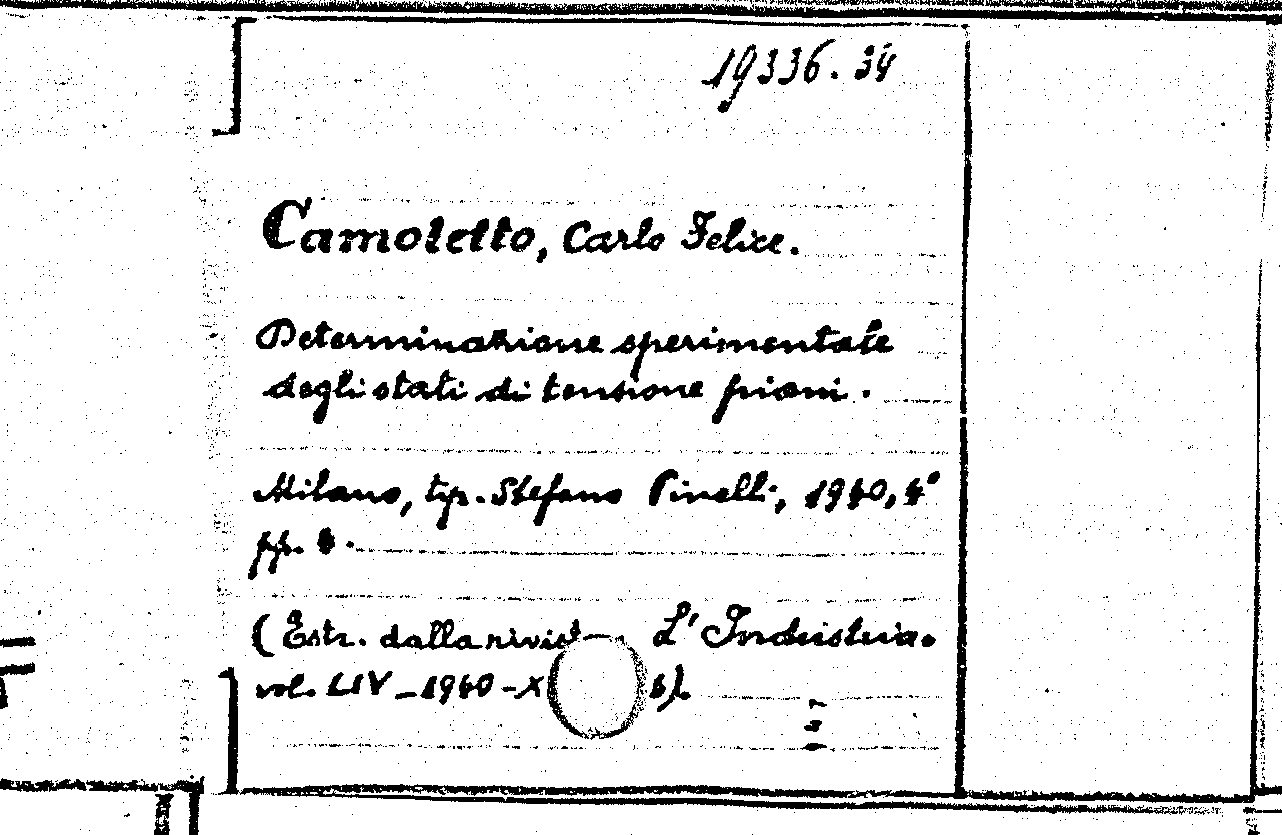 19336.34
Camoletto, Carlo Felice.
Determinazione sperimentale
degli stati di tensione piani.
Milano, tip. Stefano Pinelli, 1940, 4°
pp.
(Estr. dalla L'Industria.
vol. LIV - 1940 - X